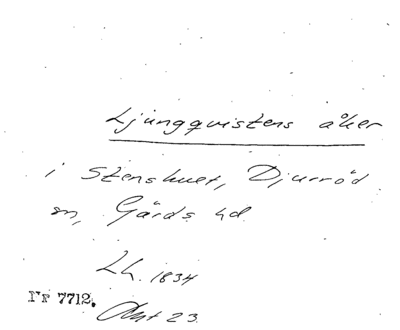 Ljungqvistens åker
i Stenshuet, Djurröd
sn, Gärds hd
Lh. 1834
Nr 7712.
Akt 23